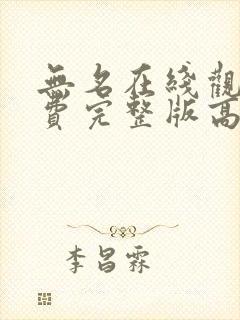 無名在綫觀
費完整版高
李昌霖